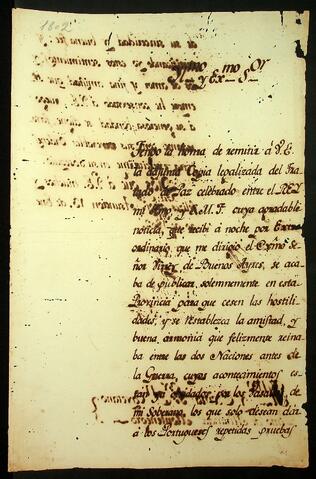 1802
Yll.mo y Ex.mo S.or
Tengo la honra de remitir á V.E.
la adjunta Copia legalizada del Tra
tado de Paz celebrado entre el REY
mi Amo, y S.M.F. cuya agradable
noticia, que recibí á noche por Extra
ordinario, que me dirigió el Exmo Se
ñor Virrey de Buenos Ayres, se aca
ba de publicar solemnemente en esta
Provincia para que cesen las hostili
dades, y se restablezca la amistad, y
buena armonia que felizmente reina
ba entre las dos Naciones antes de
la Guerra, cuyos acontecimientos es
tan ya olvidados por los Vasallos de
mi Soberano, los que solo desean dar
á los Portugueses repetidas pruebas